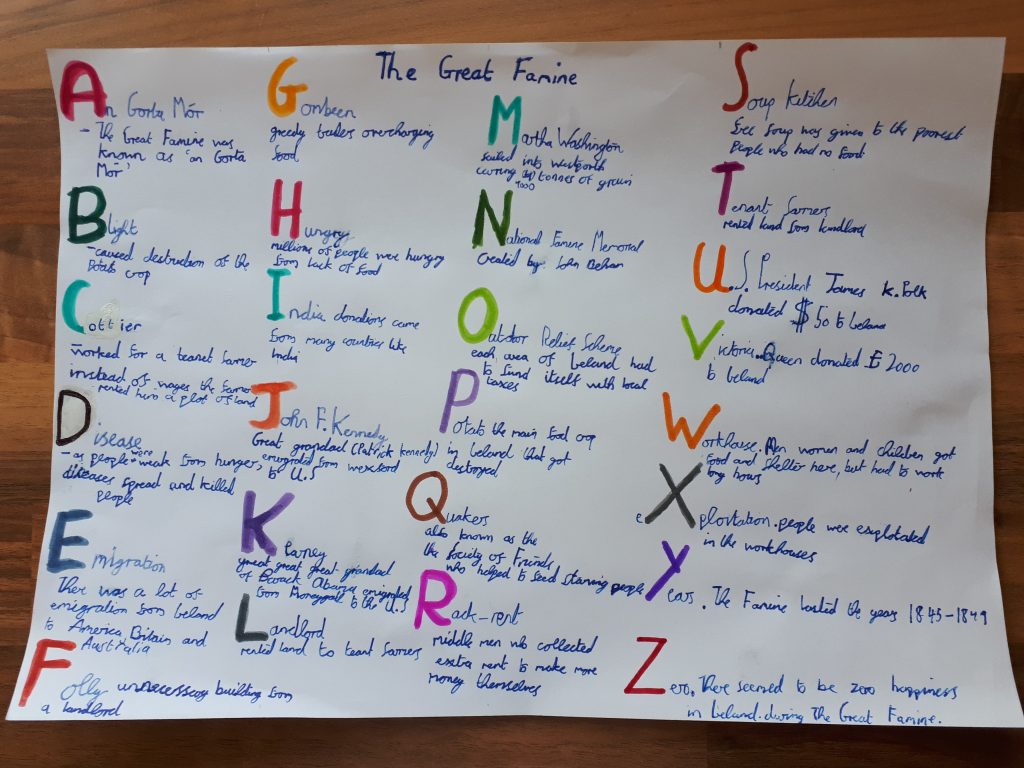 The Great Famine
An Gorta Mór
- The Great Famine was
known as 'an Gorta
Mór'
Blight
- caused destruction of the
potato crop
Cottier
- worked for a teanet farmer
instead of wages the farmer
rented him a plot of land
Disease
- as people were weak from hunger,
diseases spread and killed
people
Emigration
Ther was a lot of
emigration from Ireland
to America, Britain and
Australia
Folly unnecessary building from
a landlord
Gombeen
greedy traders overcharging
food
Hungry
millions of people were hungry
from lack of food
India donations came
from many countries like
India
John F. Kennedy
Great grandad (Patrick Kennedy)
emigrated from wexford
to U.S
Kearney
great great great grandad
of Barack Obama emigrated
from Moneygall to the U.S
Landlord
rented land to teant farmers
Martha Washington
sailed into wexforth
carring
1000 tonnes of grain
National Famine Memorial
Created by: John Behan
Outdoor Relief Scheme
each area of Ireland had
to fund itself with local
taxes
Potato the main food crop
in Ireland that got
destroyed
Quakers
also known as the
the Society of Friends
who helped to feed starving people
Rack-rent
middle men who collected
extra rent to make more
money themselves
Soup kitchen
free soup was given to the poorest
people who had no food
Tenant farmers
rented land from landlord
U.S. President James K. Polk
donated $50 to Ireland
Victoria. Queen donated £2000
to Ireland
Workhouse. Men women and children got
food and shelter here, but had to work
long hours
eXploitation. people were exploitated
in the workhouses
Years. The Famine lasted the years 1845-1849
Zero. There seemed to be zero happiness
in Ireland during The Great Famine.